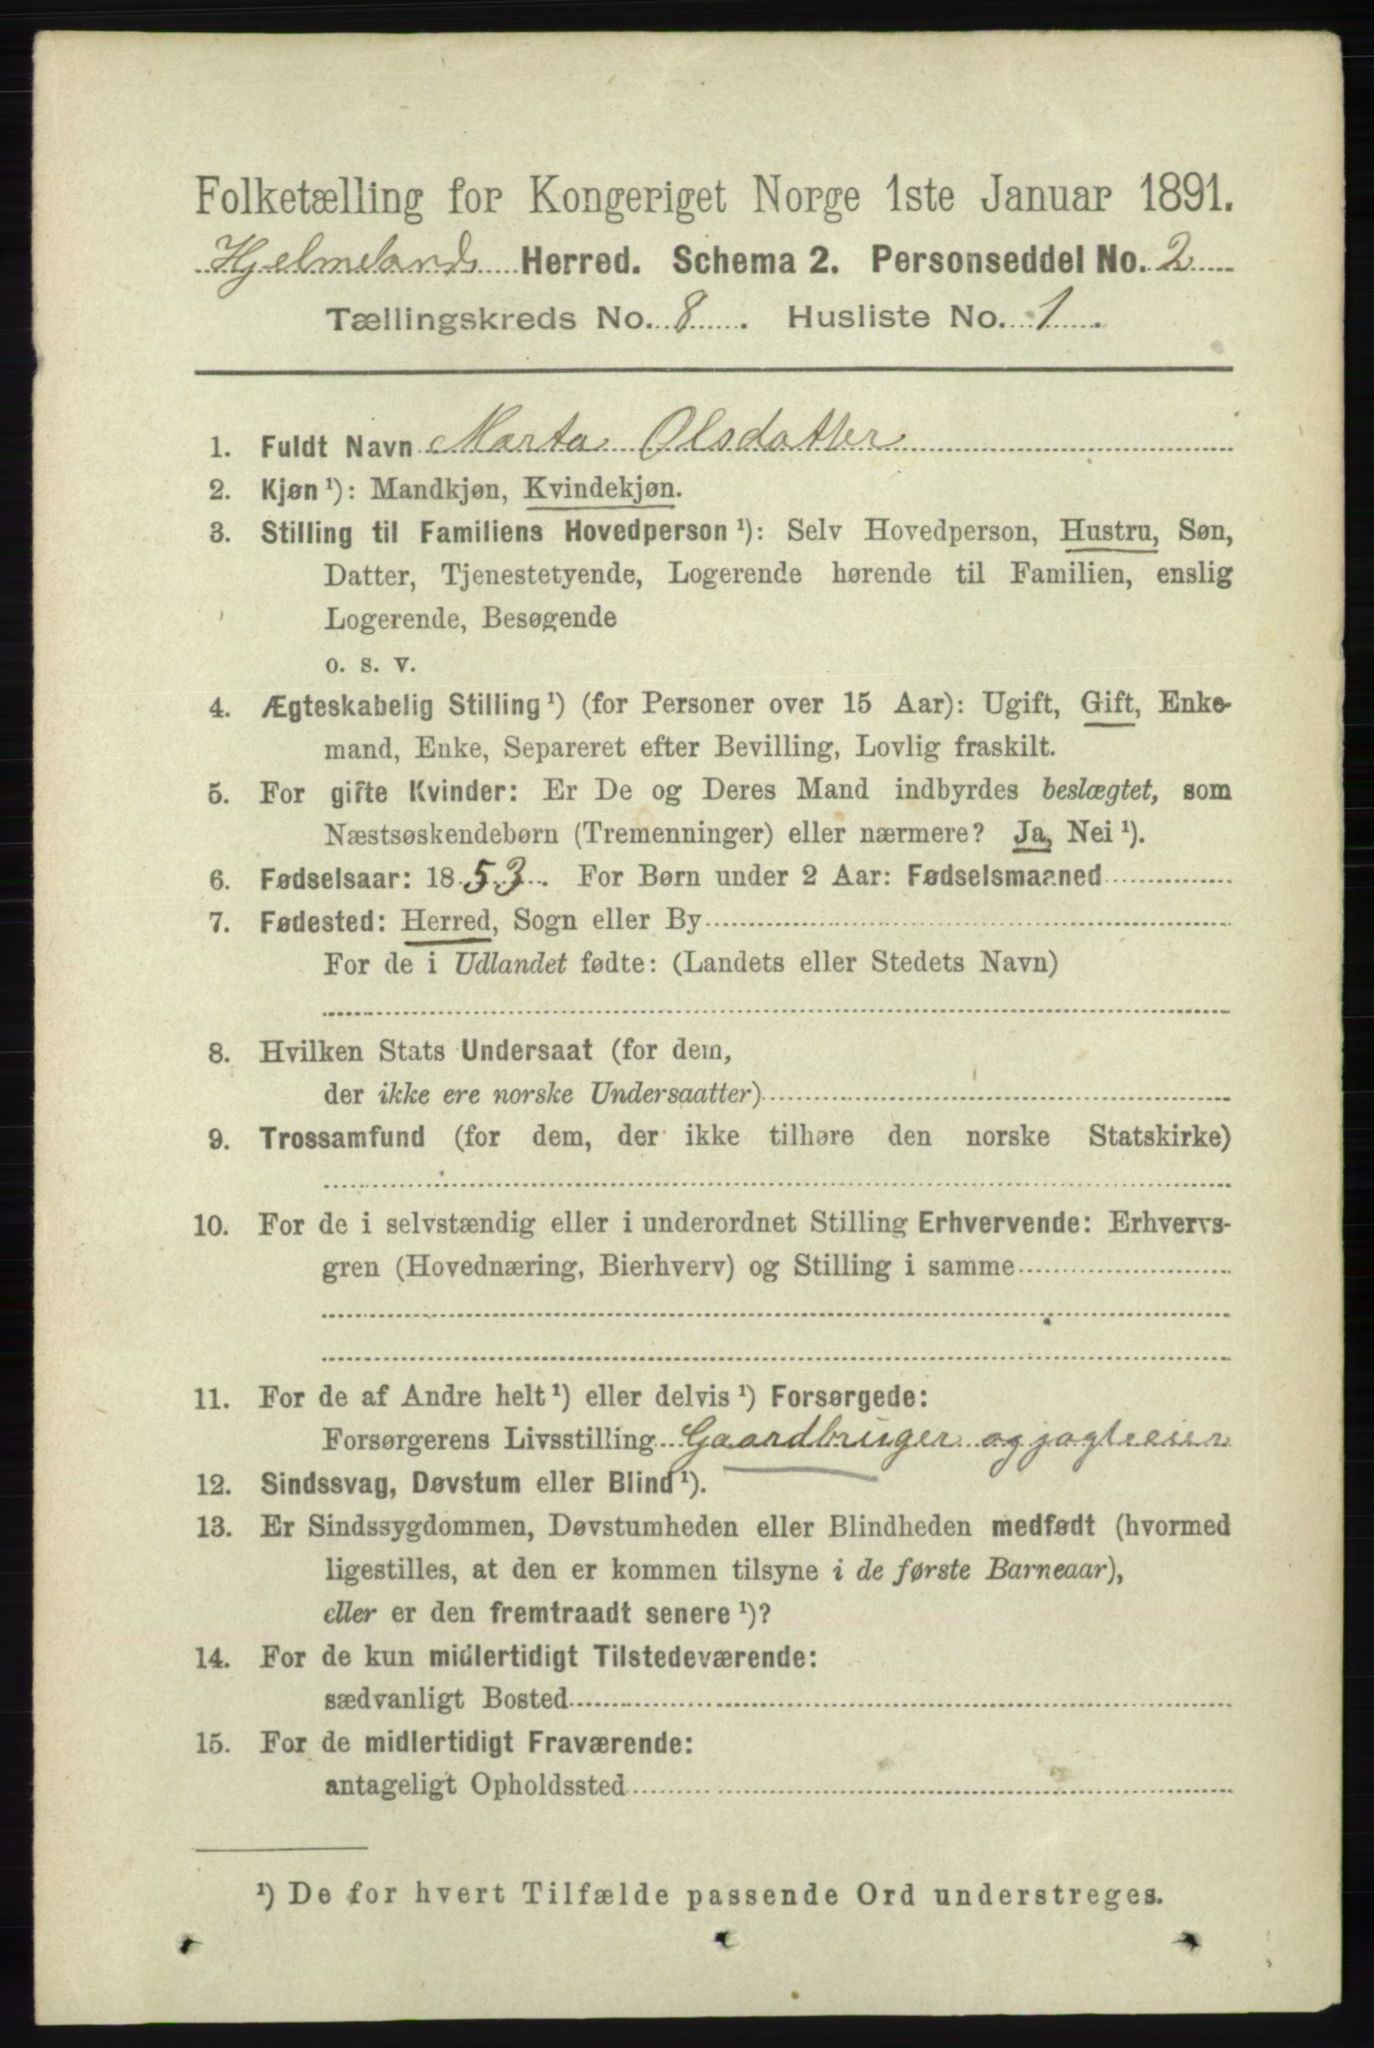 Folketælling for Kongeriget Norge 1ste Januar 1891.
Hjelmelands Herred. Schema 2. Personseddel No. 2
Tællingskreds No. 8. Husliste No. 1.
1. Fuldt Navn Marta Olsdatter
2. Kjøn ¹): Mandkjøn, Kvindekjøn.
3. Stilling til Familiens Hovedperson ¹): Selv Hovedperson, Hustru, Søn,
Datter, Tjenestetyende, Logerende hørende til Familien, enslig
Logerende, Besøgende
o. s. v.
4. Ægteskabelig Stilling ¹) (for Personer over 15 Aar): Ugift, Gift, Enke-
mand, Enke, Separeret efter Bevilling, Lovlig fraskilt.
5. For gifte Kvinder: Er De og Deres Mand indbyrdes beslægtet, som
Næstsøskendebørn (Tremenninger) eller nærmere? Ja, Nei ¹).
6. Fødselsaar: 1853. For Børn under 2 Aar: Fødselsmaaned
7. Fødested: Herred, Sogn eller By
For de i Udlandet fødte: (Landets eller Stedets Navn)
8. Hvilken Stats Undersaat (for dem,
der ikke ere norske Undersaatter)
9. Trossamfund (for dem, der ikke tilhøre den norske Statskirke)
10. For de i selvstændig eller i underordnet Stilling Erhvervende: Erhvervs-
gren (Hovednæring, Bierhverv) og Stilling i samme
11. For de af Andre helt ¹) eller delvis ¹) Forsørgede:
Forsørgerens Livsstilling Gaardbruger og jagteier
12. Sindssvag, Døvstum eller Blind ¹).
13. Er Sindssygdommen, Døvstumheden eller Blindheden medfødt (hvormed
ligestilles, at den er kommen tilsyne i de første Barneaar),
eller er den fremtraadt senere ¹)?
14. For de kun midlertidigt Tilstedeværende:
sædvanligt Bosted
15. For de midlertidigt Fraværende:
antageligt Opholdssted
¹) De for hvert Tilfælde passende Ord understreges.